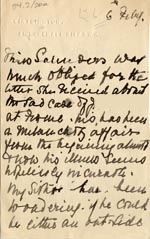 6 Feby.
Miss Saunders was
much obliged for the
letter she received about
the sad case of
at Frome. has been
a melancholy affair
from the beginning almost
& now his illness seems
hopelessly incurable.
My sister has been
wondering if he could
be either an out-side